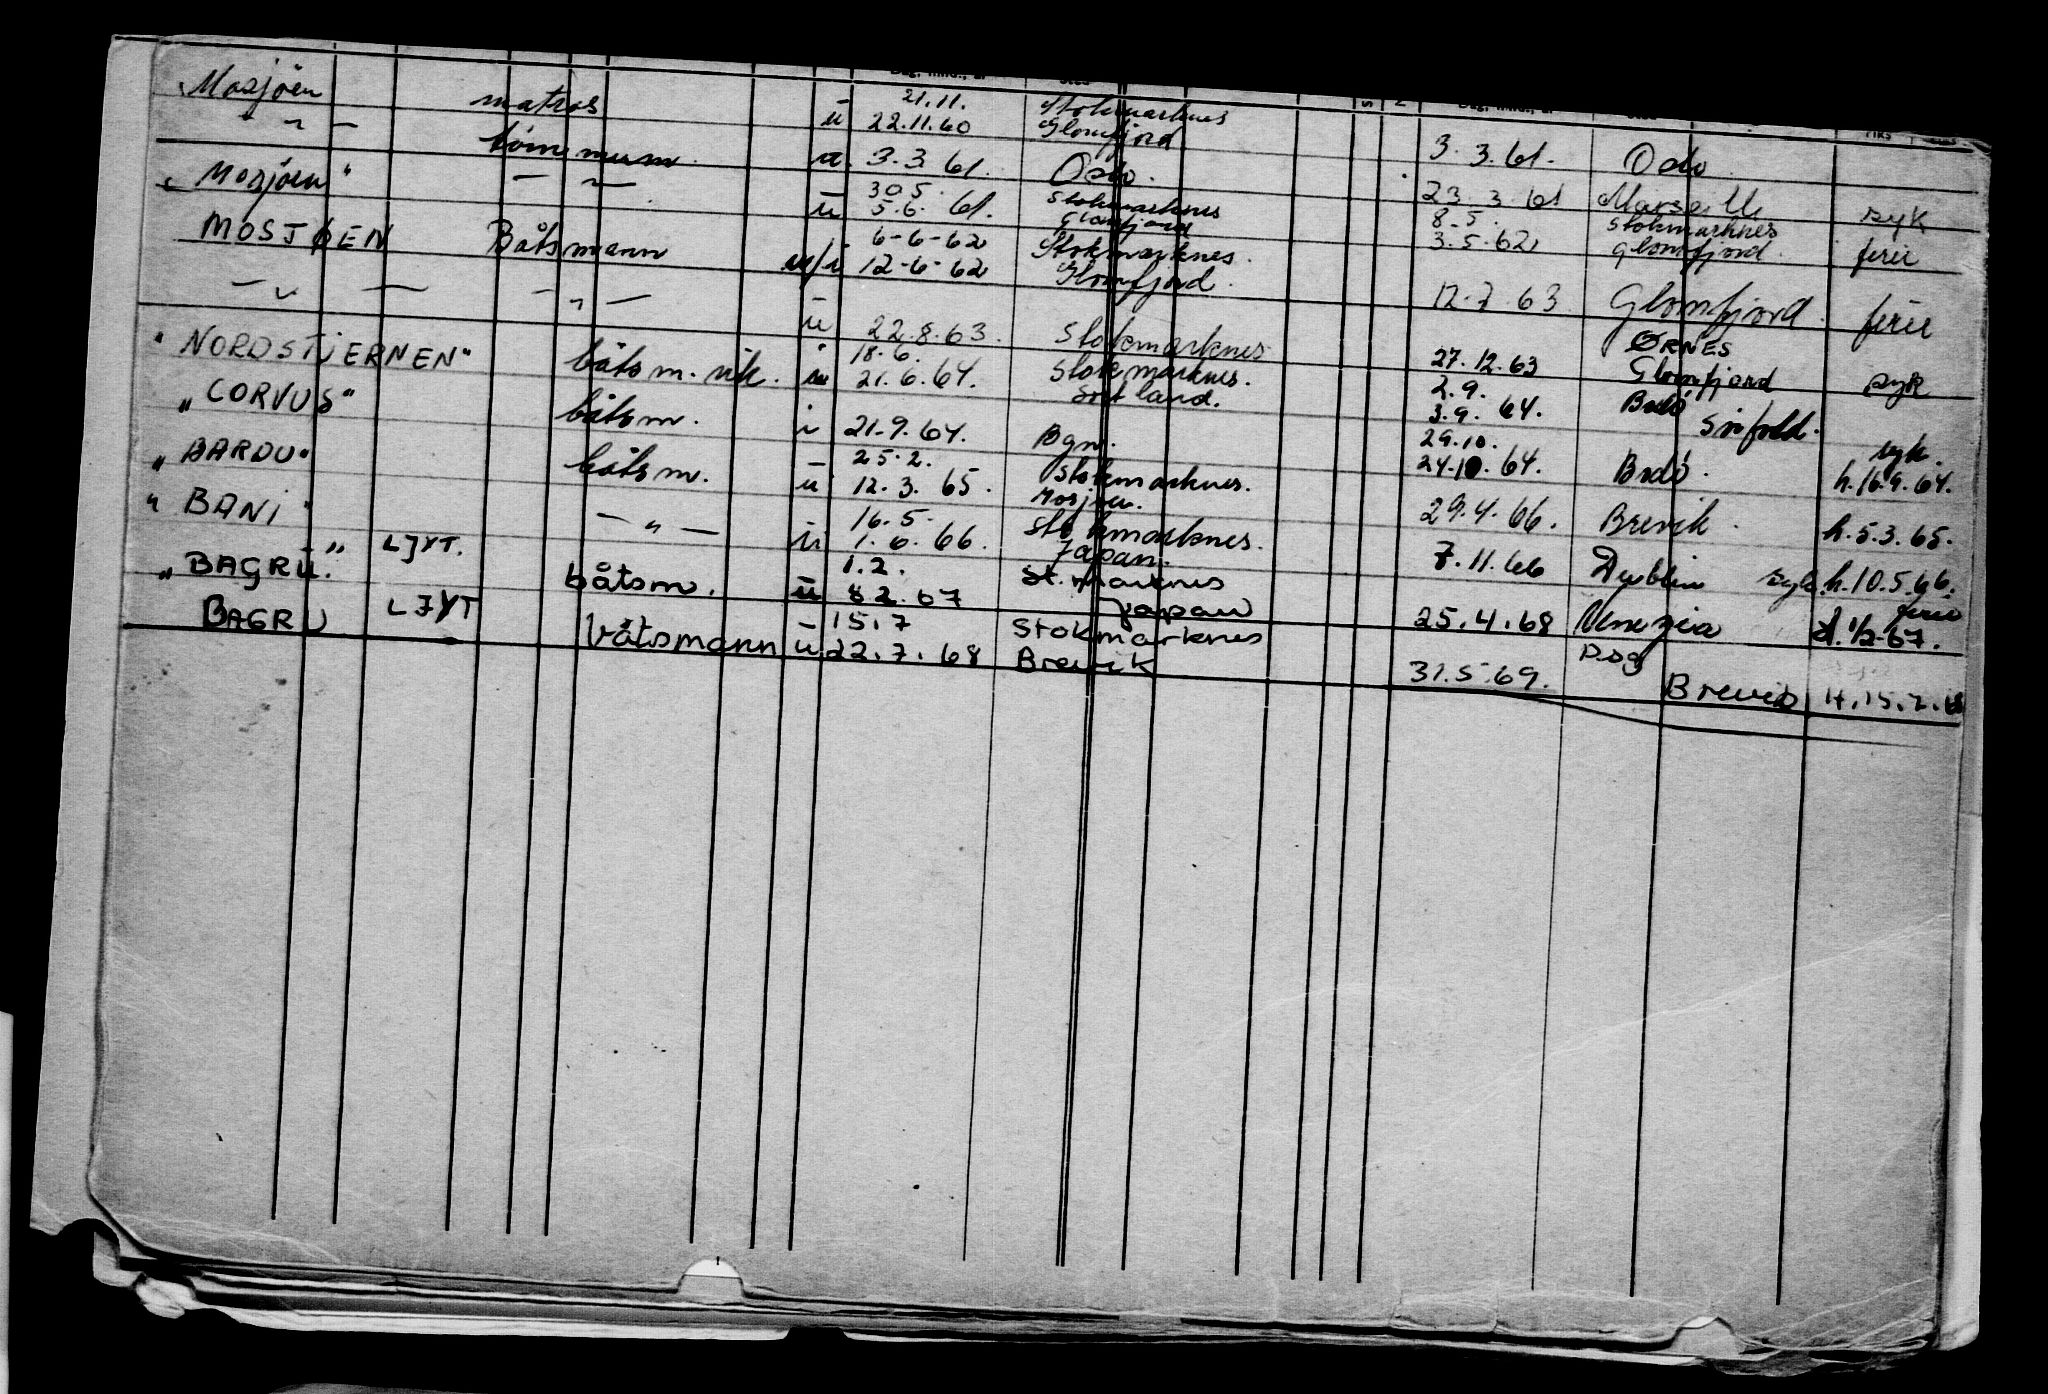 Dag, mnd., år Sted Dag, mnd., år Sted
"Mosjöen matros ü 21.11. 22.11.60 Stokmarknes Glomfjord 3.3.61. Oslo
" tömmerm. a. 3.3.61. Oslo. 23.3.61 Marseille syk
"Mosjöen" — " — ü 30.5. 5.6.61. Stokmarknes Glomfjord 8.5. 3.5.62 Stokmarknes Glomfjord ferie
MOSJØEN Båtsmann 6-6-62 12-6-62 Stokmarknes. Glomfjord. 12.7.63 Glomfjord. ferie
— " — — " — ü 22.8.63. Stokmarknes 27.12.63 ØRNES Glomfjord syk
"NORDSTJERNEN" båtsm. vik. ü 18.6. 21.6.64. Stokmarknes. Sortland. 2.9. 3.9.64. Bodö syk.
"CORVUS" båtsm. i 21.9.64. Bgn. 29.10. 24.10.64. Bodö. h.16.9.64.
"BARDU" båtsm. ü 25.2. 12.3.65. Stokmarknes. Mosjøen. 29.4.66. Brevik. h.5.3.65.
"BANI" — " — ü 16.5. 1.6.66. Stokmarknes. Japan. 7.11.66 Dublin syk. h.10.5.66.
"BAGRU." LJYT. båtsm. ü 1.2. 8.2.67 St.marknes Japan 25.4.68 Venezia ferie h. 1/2-67.
BAGRU LJYT båtsmann ü 15.7 22.7.68 Stokmarknes Brevik 31.5.69. P.sg Brevik H.15.7.68